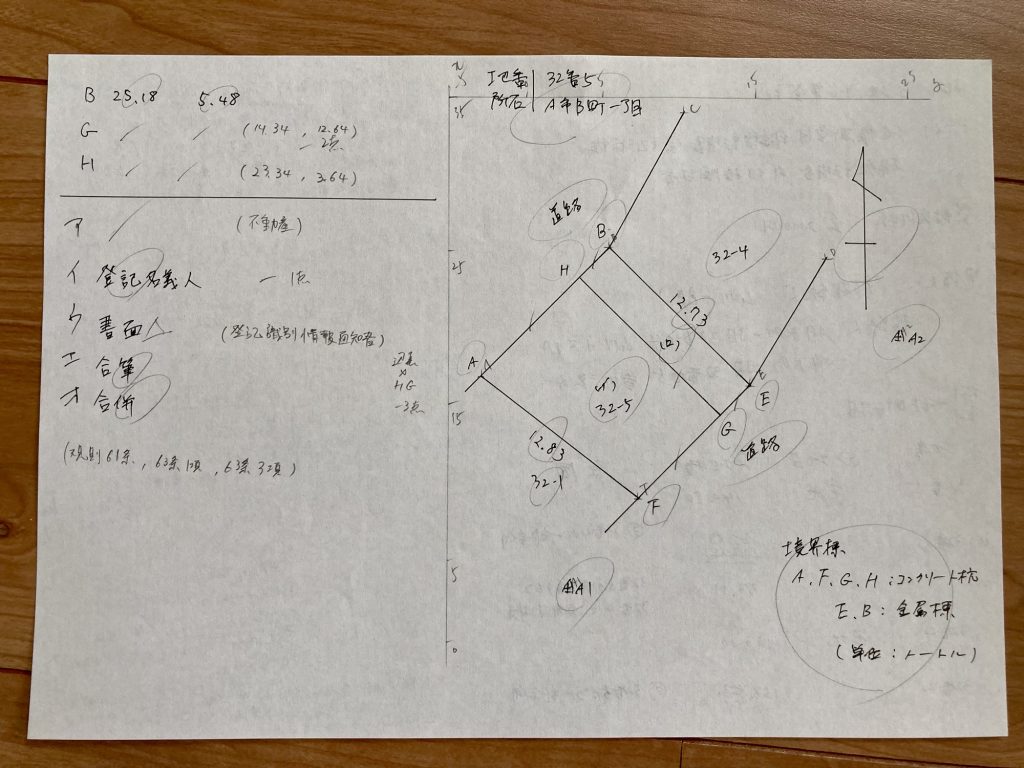 B 25.18 5.48
G / / (14.34, 12.64)
-2点
H / / (23.34, 3.64)
ア / (不動産)
イ 登記名義人 -1点
ウ 書面 (登記識別情報通知書)
エ 合筆
オ 合併
辺長
×
HG
-3点
(規則61条, 63条1項, 63条3項)
x
地番 32番5
所在 A市B町一丁目
15
25
y
35
25
15
5
0
C
道路
B
H
32-4
D
12.73
(ロ)
A
(イ)
32-5
E
E
G
道路
12.83
32-1
F
A2
A1
境界標
A、F、G、H:コンクリート杭
E、B:金属標
(単位:メートル)